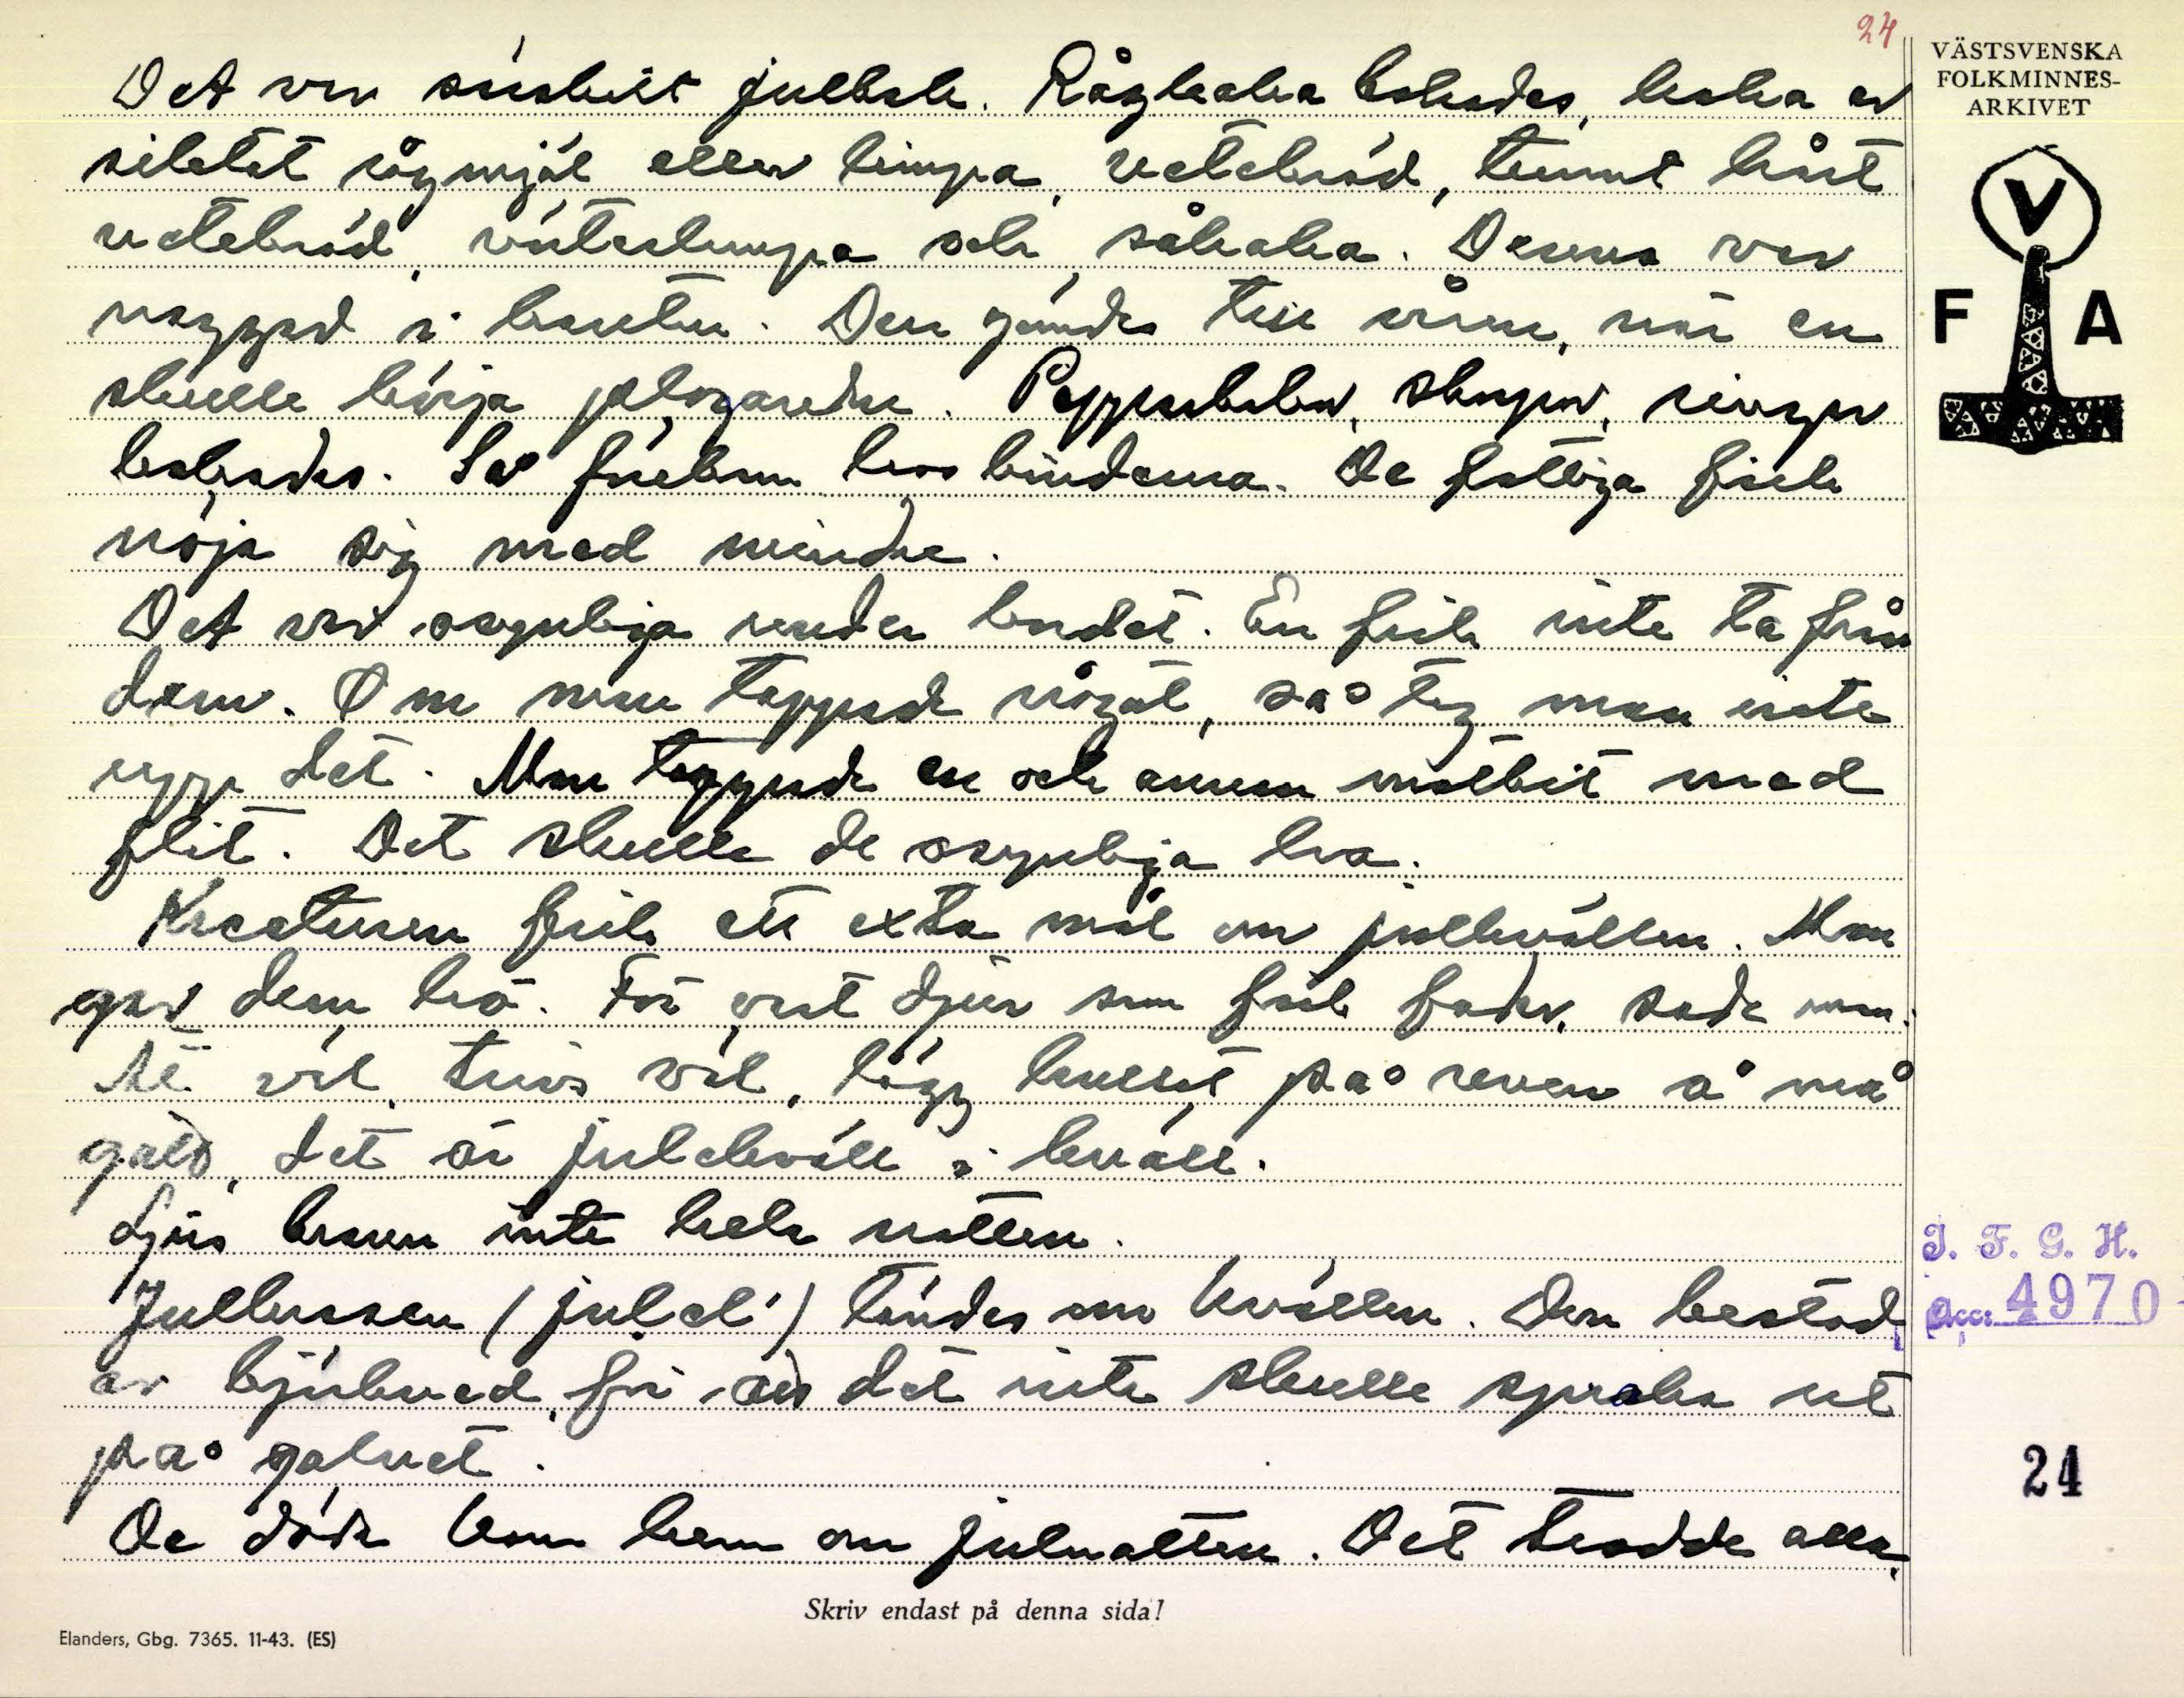 24
Det var särskilt julbak. Rågkaka bakades, kaka av
siktat rågmjöl eller limpa, vetebröd, tunnt hårt
vetebröd, vörtelimpa och såkaka. Denna var
naggad i kanten. Den gömdes till våren, när en
skulle börja plogandet. Pepparkakor, skorpor, ringar
bakades. Så förekom hos bönderna. De fattiga fick
nöja sig med mindre.
Det var osynliga under bordet. En fick inte ta från
dem. Om man tappade något, så tog man inte
upp det. Man tappade en och annan matbit med
flit. Det skulle de osynliga ha.
Kreaturen fick ett exta mål om julkvällen. Man
gav dem hö. För vart djur som fick foder, sade man:
Ät väl, trivs väl, ligg kullet på reven å må
gott, det är julekväll i kväll.
Ljus brann inte hela natten.
Julbrasan (julel') tändes om kvällen. Den bestod
av björkved, för att det inte skulle spraka ut
på golvet.
De döda kom hem om julnatten. Det trodde alla.
VÄSTSVENSKA
FOLKMINNES-
ARKIVET
V
F A
I. F. G. H.
Acc: 4970
24
Skriv endast på denna sida!
Elanders, Gbg. 7365. 11-43. (ES)